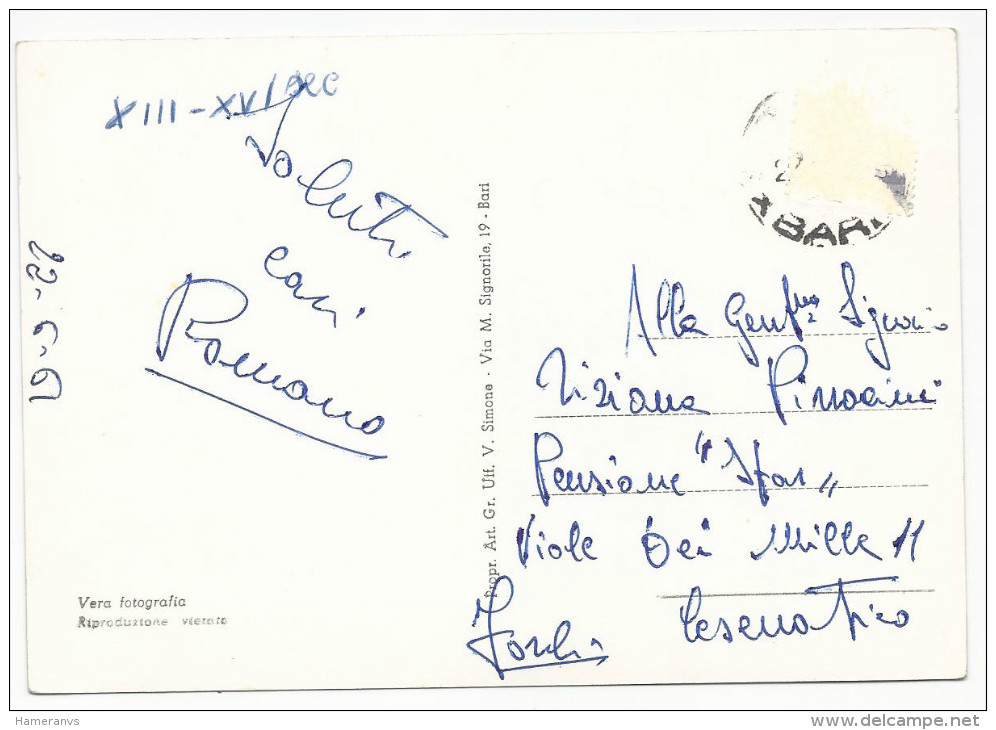 XIII-XVI sec
Saluti
cari
Romano
22-6-61
Vera fotografia
Riproduzione vietata
Propr. Art. Gr. Uff. V. Simone - Via M. Signorile, 19 - Bari
BARI
Alla Gent.ma Signorina
Tiziana
Pensione "
Viale Dei Mille 11
Cesenatico
Forlì
Hameranvs
delcampe.net